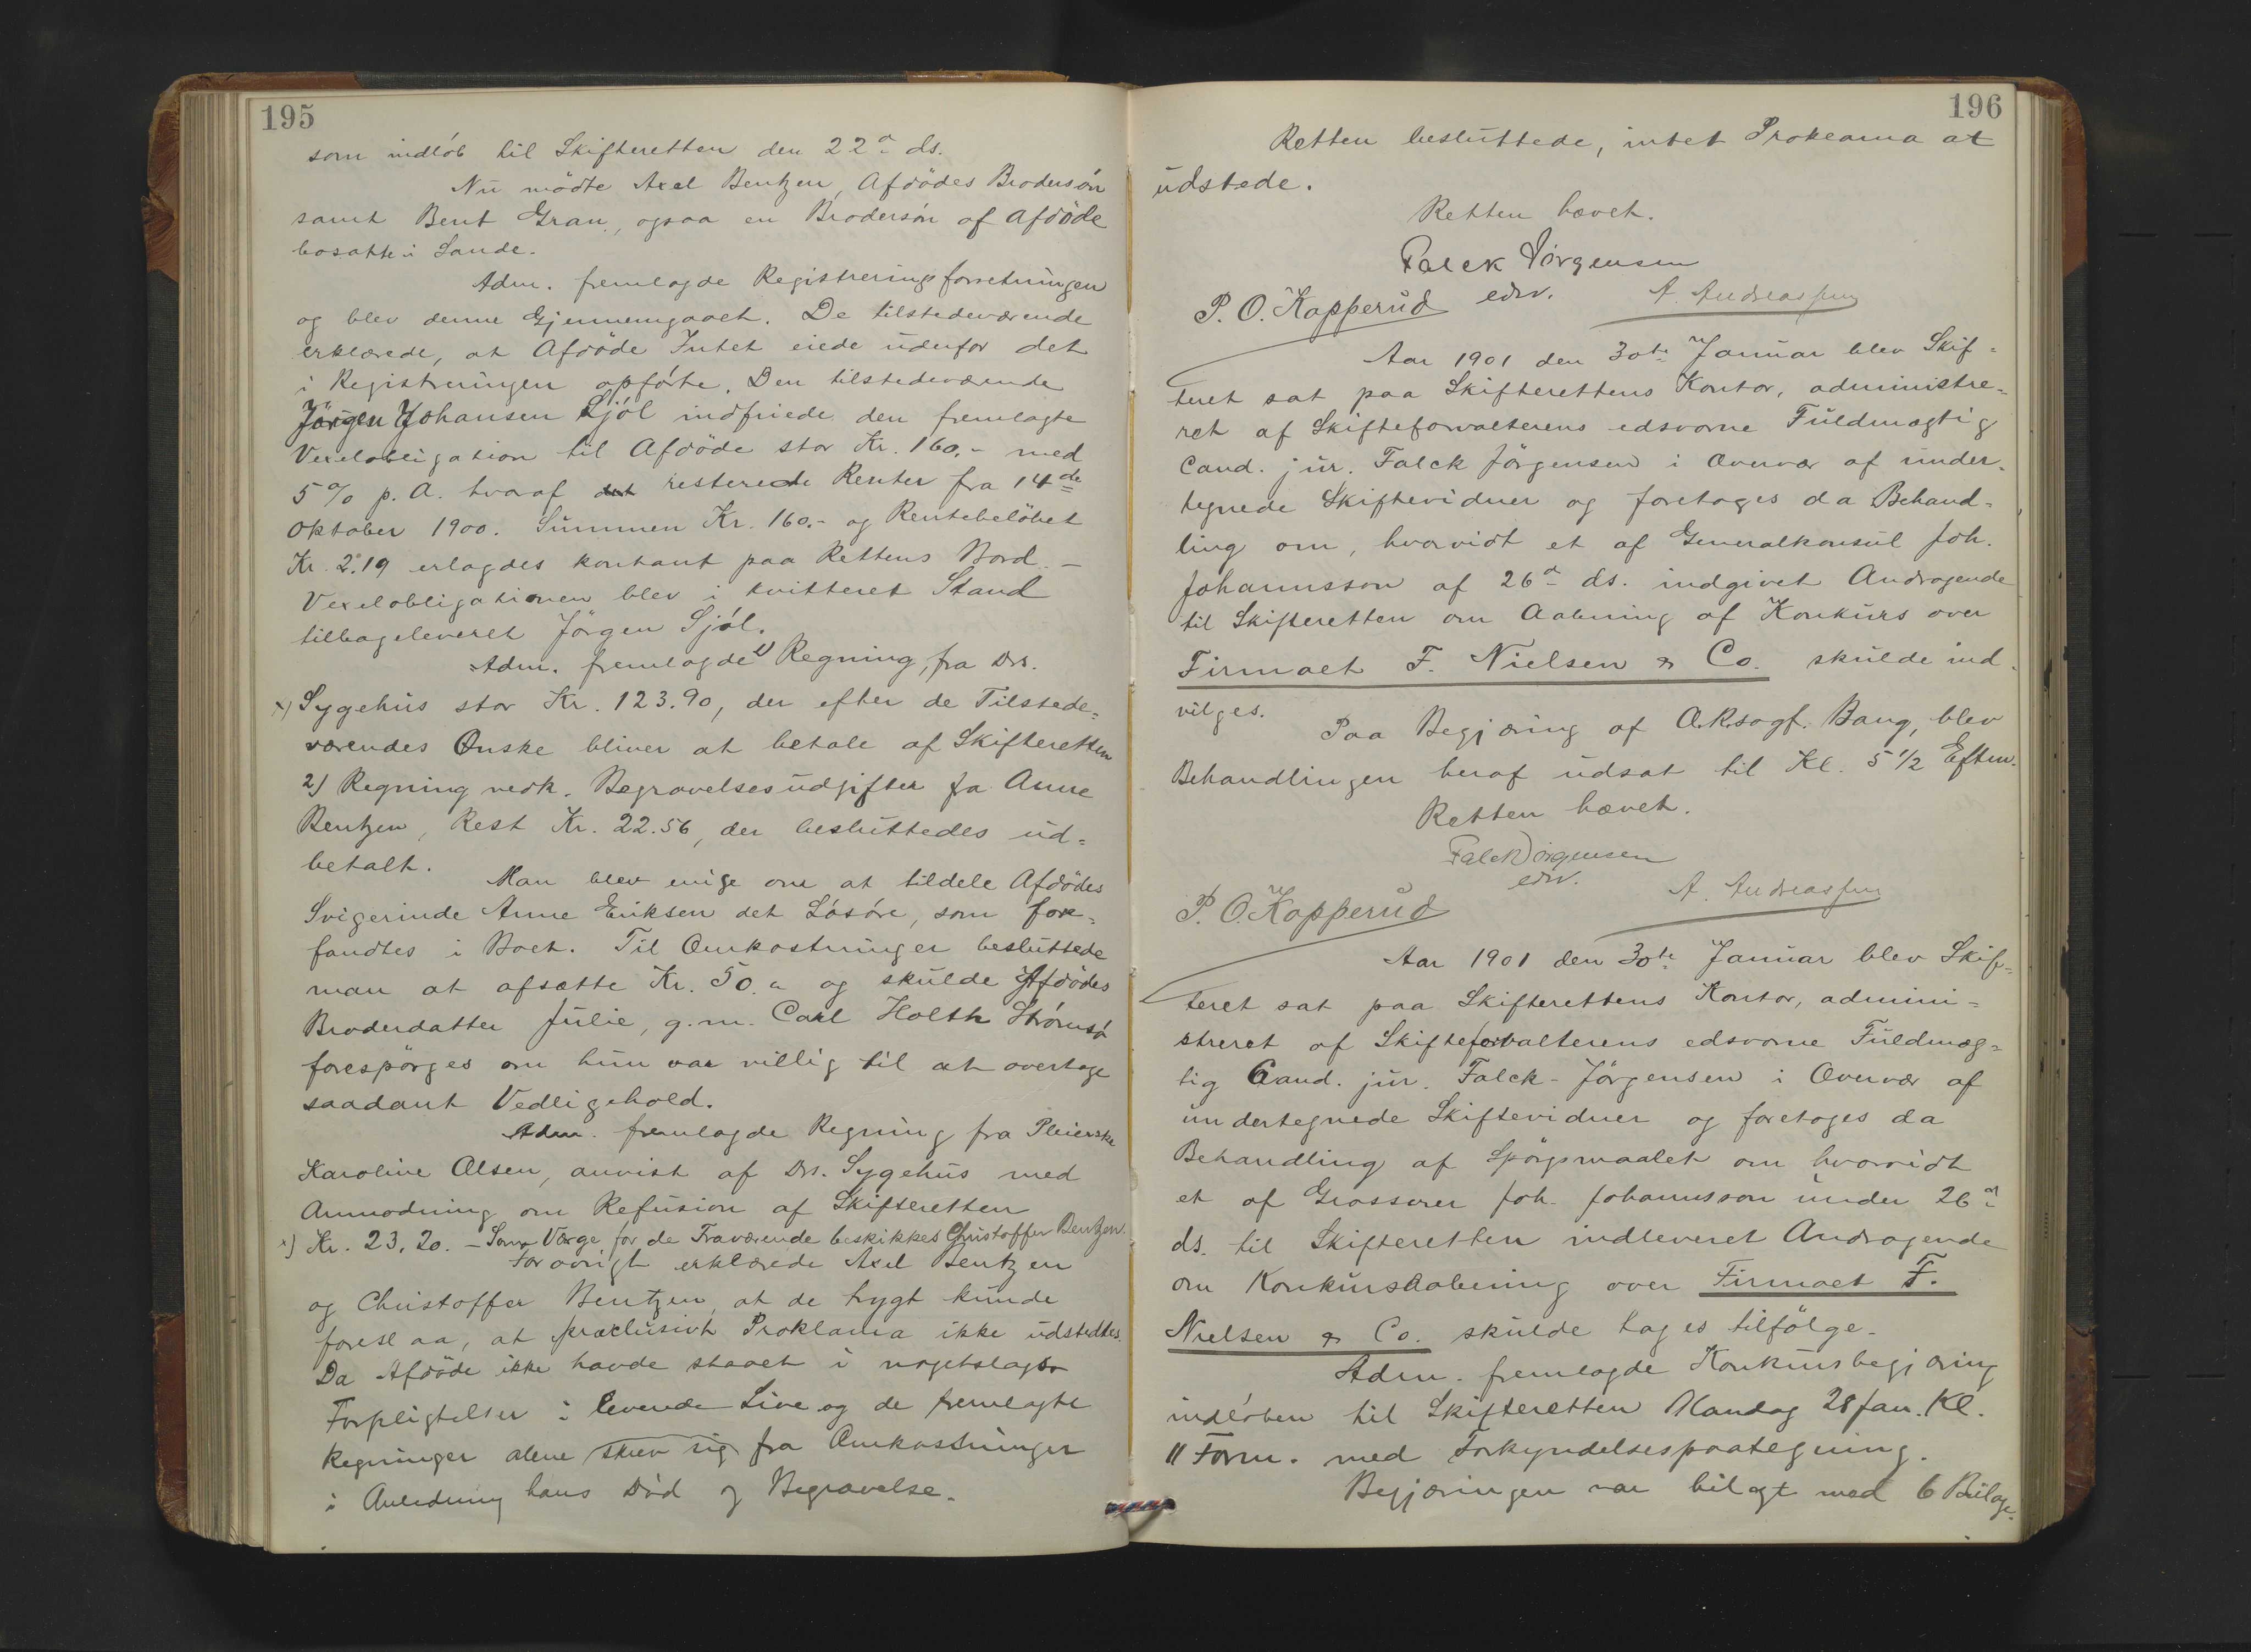 195
som indlöb til Skifteretten den 22d ds.
Nu mödte Axel Bentzen, Afdödes Brodersön
samt Bent Gran, ogsaa en Brodersön af Afdöde
bosatte i Sande.
Adm. fremlagde Registreringsforretningen
og blev denne Gjennemgaaet. De tilstedeværende
erklærede, at Afdöde Intet eiede udenfor det
i Registreringen opförte. Den tilstedeværende
Jörgen Johansen Sjöl indfriede den fremlagte
Vexelobligation til Afdöde stor Kr. 160.- med
5% p. A. hvoraf det resterede Renter fra 14de
Oktober 1900. Summen Kr. 160.- og Rentebelöbet
Kr. 2.19 erlagdes kontant paa Rettens Bord. -
Vexelobligationen blev i kvitteret Stand
tilbageleveret Jörgen Sjöl.
Adm. fremlagde 1) Regning, fra Drs.
x) Sygehus stor Kr. 123.90, der efter de Tilstede=
værendes Önske bliver at betale af Skifteretten
2) Regning vedk. Begravelsesudgifter fa Anne
Bentzen, Rest Kr. 22.56, der besluttedes ud=
betalt.
Man blev enige om at tildele Afdödes
Svigerinde Anne Eriksen det Lösöre, som fore=
fandtes i Boet. Til Omkostninger besluttede
man at afsætte Kr. 50. " og skulde Afdödes
Broderdatter Julie, g.m. Carl Holth Strömsö
forespörges om hun var villig til at overtage
saadant Vedligehold.
Adm. fremlagde Regning fra Pleierske
Karoline Olsen, anvist af Drs. Sygehus med
Anmodning om Refusion af Skifteretten
x) Kr. 23.20. - Som Værge for de Fraværende beskikkes Christoffer Bentzen.
For övrigt erklærede Axel Bentzen
og Christoffer Bentzen, at de trygt kunde
foreslaa, at præclusivt Proklama ikke udstedtes.
Da Afdöde ikke havde staaet i nogetslags
Forpligtelser i levende Live og de fremlagte
Regninger alene skrev sig fra Omkostninger
i Anledning hans Död og Begravelse.
196
Retten besluttede, intet Proklama at
udstede.
Retten hævet.
Falck Jörgensen
edsv.
P. O. Kapperud
A. Andreassen
Aar 1901 den 30te Januar blev Skif=
teret sat paa Skifterettens Kontor, administre=
ret af Skifteforvalterens edsvorne Fuldmægtig
Cand. jur. Falck Jörgensen i Overvær af under=
tegnede Skiftevidner og foretoges da Behand=
ling om, hvorvidt et af Generalkonsul Joh.
Johannsson af 26d ds. indgivet Andragende
til Skifteretten om Aabning af Konkurs over
Firmaet F. Nielsen & Co. skulde ind=
vilges.
Paa Begjæring af O.R.sagf. Bang, blev
Behandlingen heraf udsat til Kl. 5 1/2 Efterm.
Retten hævet.
Falck Jörgensen
edsv.
P. O. Kapperud
A. Andreassen
Aar 1901 den 30te Januar blev Skif=
teret sat paa Skifterettens Kontor, admini=
streret af Skifteforvalterens edsvorne Fuldmæg=
tig Cand. jur. Falck-Jörgensen i Overvær af
undertegnede Skiftevidner og foretoges da
Behandling af Spörgsmaalet om hvorvidt
et af Grosserer Joh. Johannsson under 26d
ds. til Skifteretten indleveret Andragende
om Konkursaabning over Firmaet F.
Nielsen & Co. skulde tages tilfölge.
Adm. fremlagde Konkursbegjæring
indlöben til Skifteretten Mandag 28 Jan. Kl.
11 Form. med Forkyndelsespaategning.
Begjæringen var bilagt med 6 Bilage.